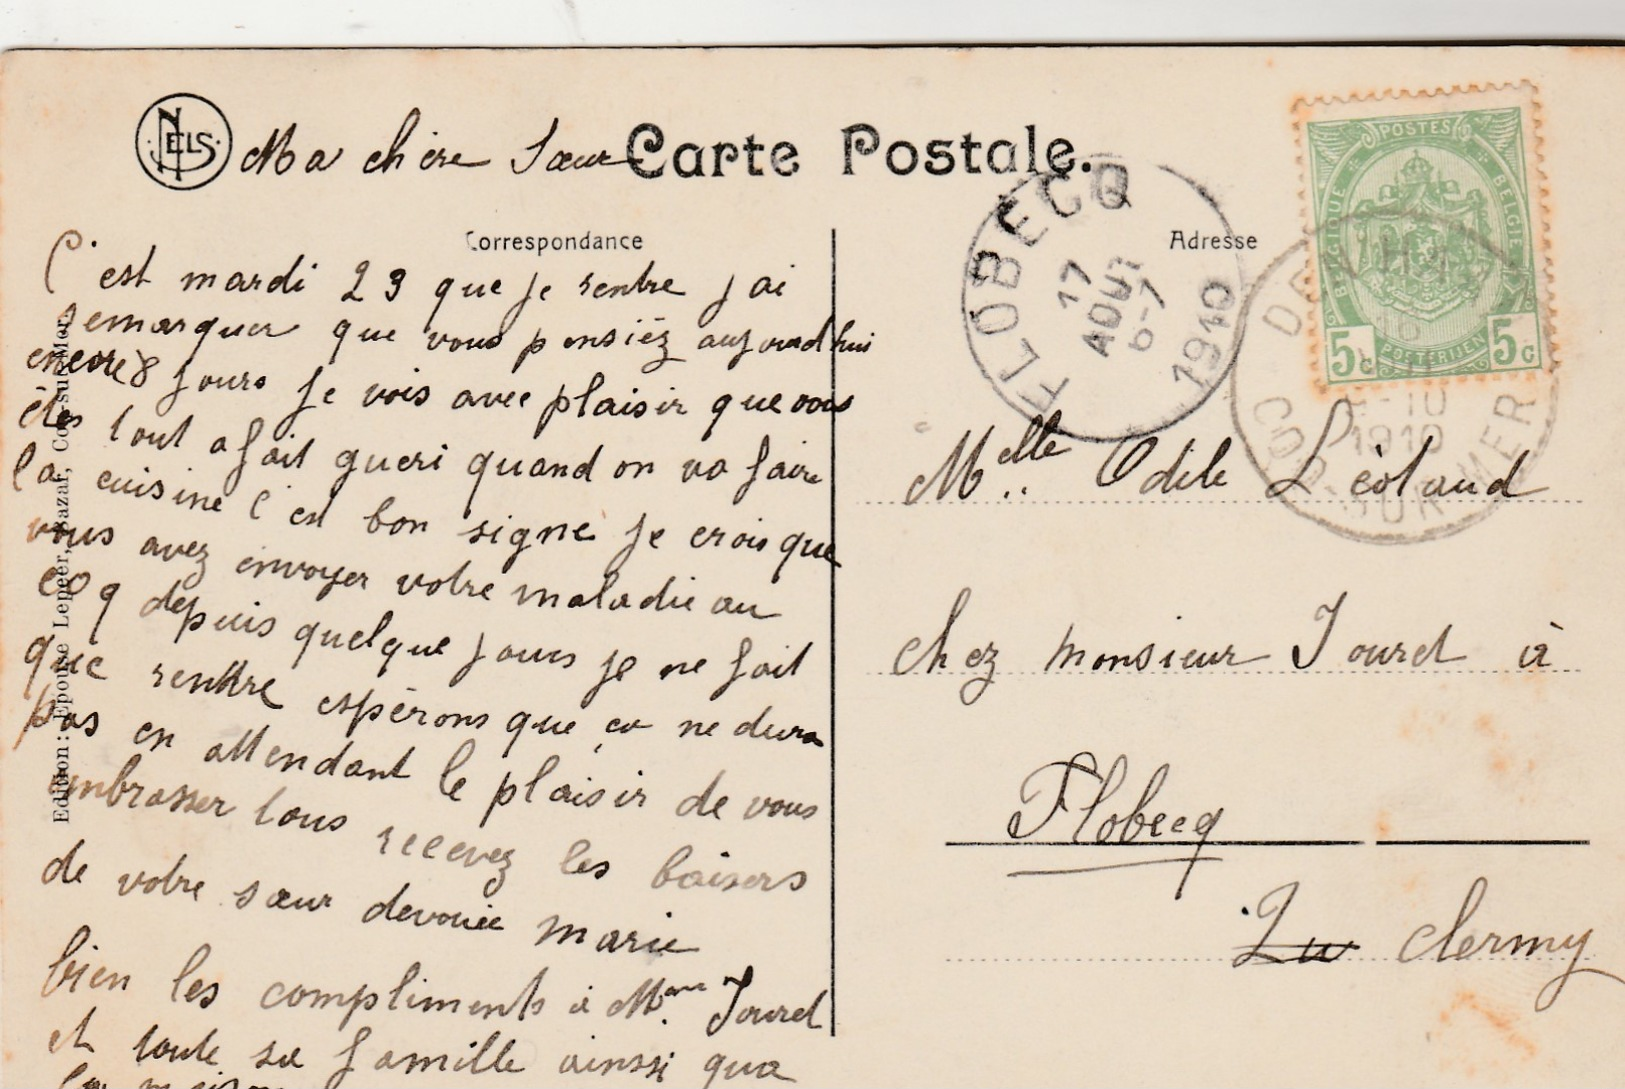 NELS
Ma chère Sœur
Carte Postale.
Correspondance
Adresse
C'est mardi 23 que je rentre j ai
remarquer que vous pensiéz aujourdhui
encore 8 jours je vois avec plaisir que vous
êtes tout a fait gueri quand on va faire
la cuisine c'est bon signe je crois que
vous avez envoyer votre maladie au
coq depuis quelque jours je ne fait
que rendre espérons que ça ne dura
pas en attendant le plaisir de vous
embrasser tous recevez les baisers
de votre sœur devouée marie
bien les compliments a Mme Jouret
et toute sa famille ainsi qua
la maison
Edition: Epouse Lepeer, Bazar, Coq-sur-Mer
FLOBECQ
17
AOUT
6-7
1910
POSTES
BELGIQUE
BELGIE
POSTERIJEN
5c
5c
DEN HAAN
1910
COQ-SUR-MER
Melle Odile Létaud
chez monsieur Jouret à
Flobecq
clermy